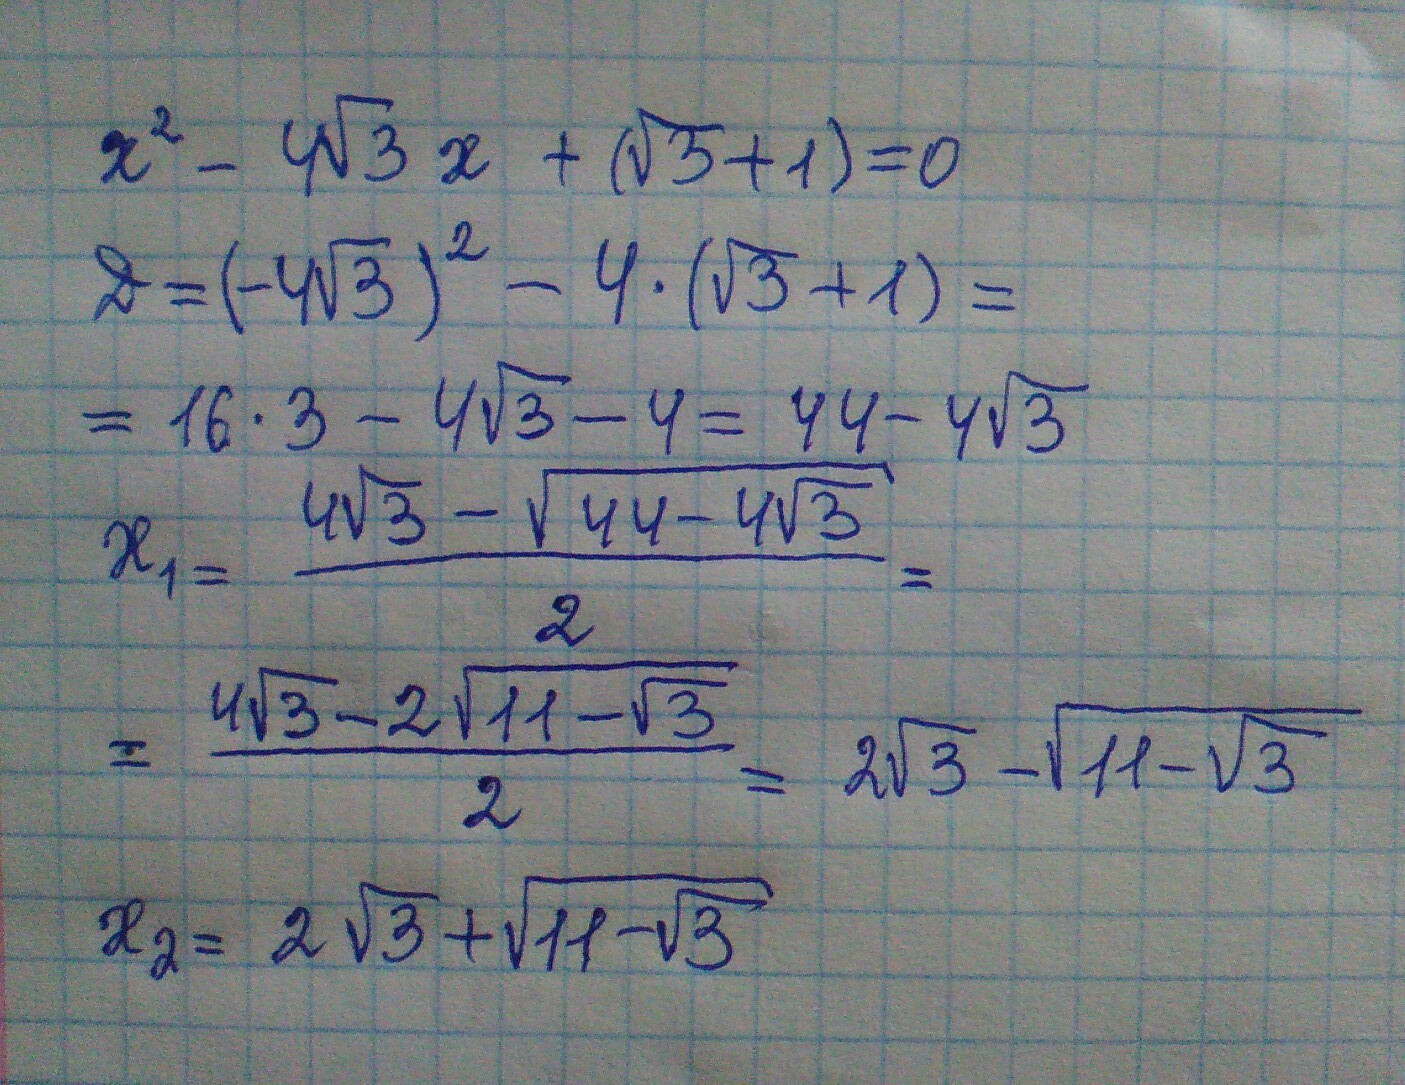 x² - 4√3 x + (√3+1)=0
D=(-4√3)² - 4·(√3+1)=
= 16·3 - 4√3 - 4 = 44 - 4√3
x₁ = (4√3 - √(44-4√3))/2 =
= (4√3 - 2√(11-√3))/2 = 2√3 - √(11-√3)
x₂ = 2√3 + √(11-√3)